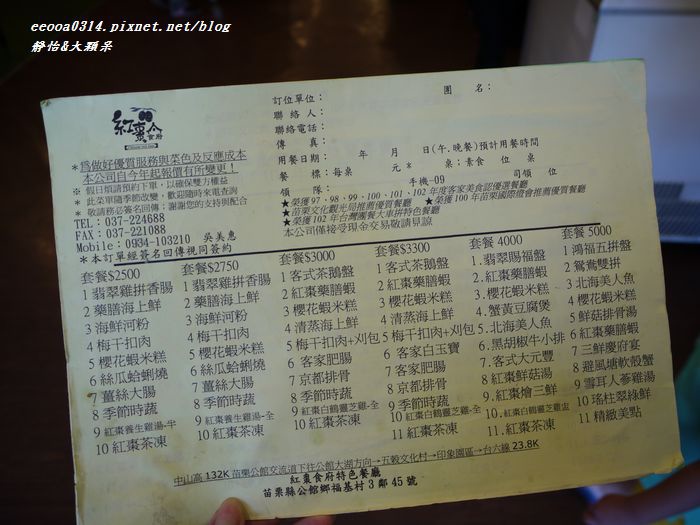 eeooa0314.pixnet.net/blog
靜怡&大顆呆
紅棗食府
訂位單位：
團 名：
聯 絡 人：
聯絡電話：
傳 真：
用餐日期： 年 月 日(午.晚餐)預計用餐時間
餐 標：每桌 元* 桌：素食 位 桌
領 隊： 手機-09 司領 位
★榮獲97、98、99、100、101、102年度客家美食認優選餐廳
★苗栗文化觀光局推薦優質餐廳 ★榮獲100年苗栗國際燈會推薦優質餐廳
★榮獲102年台灣團餐大車拚特色餐廳
本公司僅接受現金交易敬請見諒
*為做好優質服務與菜色及反應成本
本公司自今年起報價有所變更！
* 假日煩請預約下單，以確保雙方權益
* 此菜單隨季節改變，歡迎隨時來電查詢
* 敬請務必簽名回傳；謝謝您的支持與配合
TEL：037-224688
FAX：037-221088
Mobile：0934-103210 吳美惠
*本訂單經簽名回傳視同簽約
套餐$2500
1 翡翠雞拚香腸
2 藥膳海上鮮
3 海鮮河粉
4 梅干扣肉
5 櫻花蝦米糕
6 絲瓜蛤蜊燒
7 薑絲大腸
8 季節時蔬
9 紅棗養生雞湯-半
10 紅棗茶凍
套餐$2750
1 翡翠雞拚香腸
2 藥膳海上鮮
3 海鮮河粉
4 梅干扣肉
5 櫻花蝦米糕
6 絲瓜蛤蜊燒
7 薑絲大腸
8 季節時蔬
9 紅棗養生雞湯-全
10 紅棗茶凍
套餐$3000
1 客式茶鵝盤
2 紅棗藥膳蝦
3 櫻花蝦米糕
4 清蒸海上鮮
5 梅干扣肉+刈包
6 客家肥腸
7 京都排骨
8 季節時蔬
9 紅棗白鶴靈芝雞-全
10 紅棗茶凍
套餐$3300
1 客式茶鵝盤
2 紅棗藥膳蝦
3 櫻花蝦米糕
4 清蒸海上鮮
5 梅干扣肉+刈包
6 客家白玉寶
7 客家肥腸
8 京都排骨
9 季節時蔬
10 紅棗白鶴靈芝雞-全
11 紅棗茶凍
套餐 4000
1.翡翠賜福盤
2.紅棗藥膳蝦
3.櫻花蝦米糕
4.蟹黃豆腐煲
5.北海美人魚
6.黑胡椒牛小排
7.客式大元豐
8.紅棗鮮菇湯
9.紅棗燴三鮮
11.紅棗茶凍
套餐 5000
1 鴻福五拚盤
2 鴛鴦雙拚
3 北海美人魚
4 櫻花蝦米糕
5 鮮菇排骨湯
6 紅棗藥膳蝦
7 三鮮慶府宴
8 避風塘軟殼蟹
9 雪耳人參雞湯
10 瑤柱翠綠鮮
11 精緻美點
中山高 132K 苗栗公館交流道下往公館大湖方向→五穀文化村→印象園區→台六線 23.8K
紅棗食府特色餐廳
苗栗縣公館鄉福基村 3 鄰 45 號